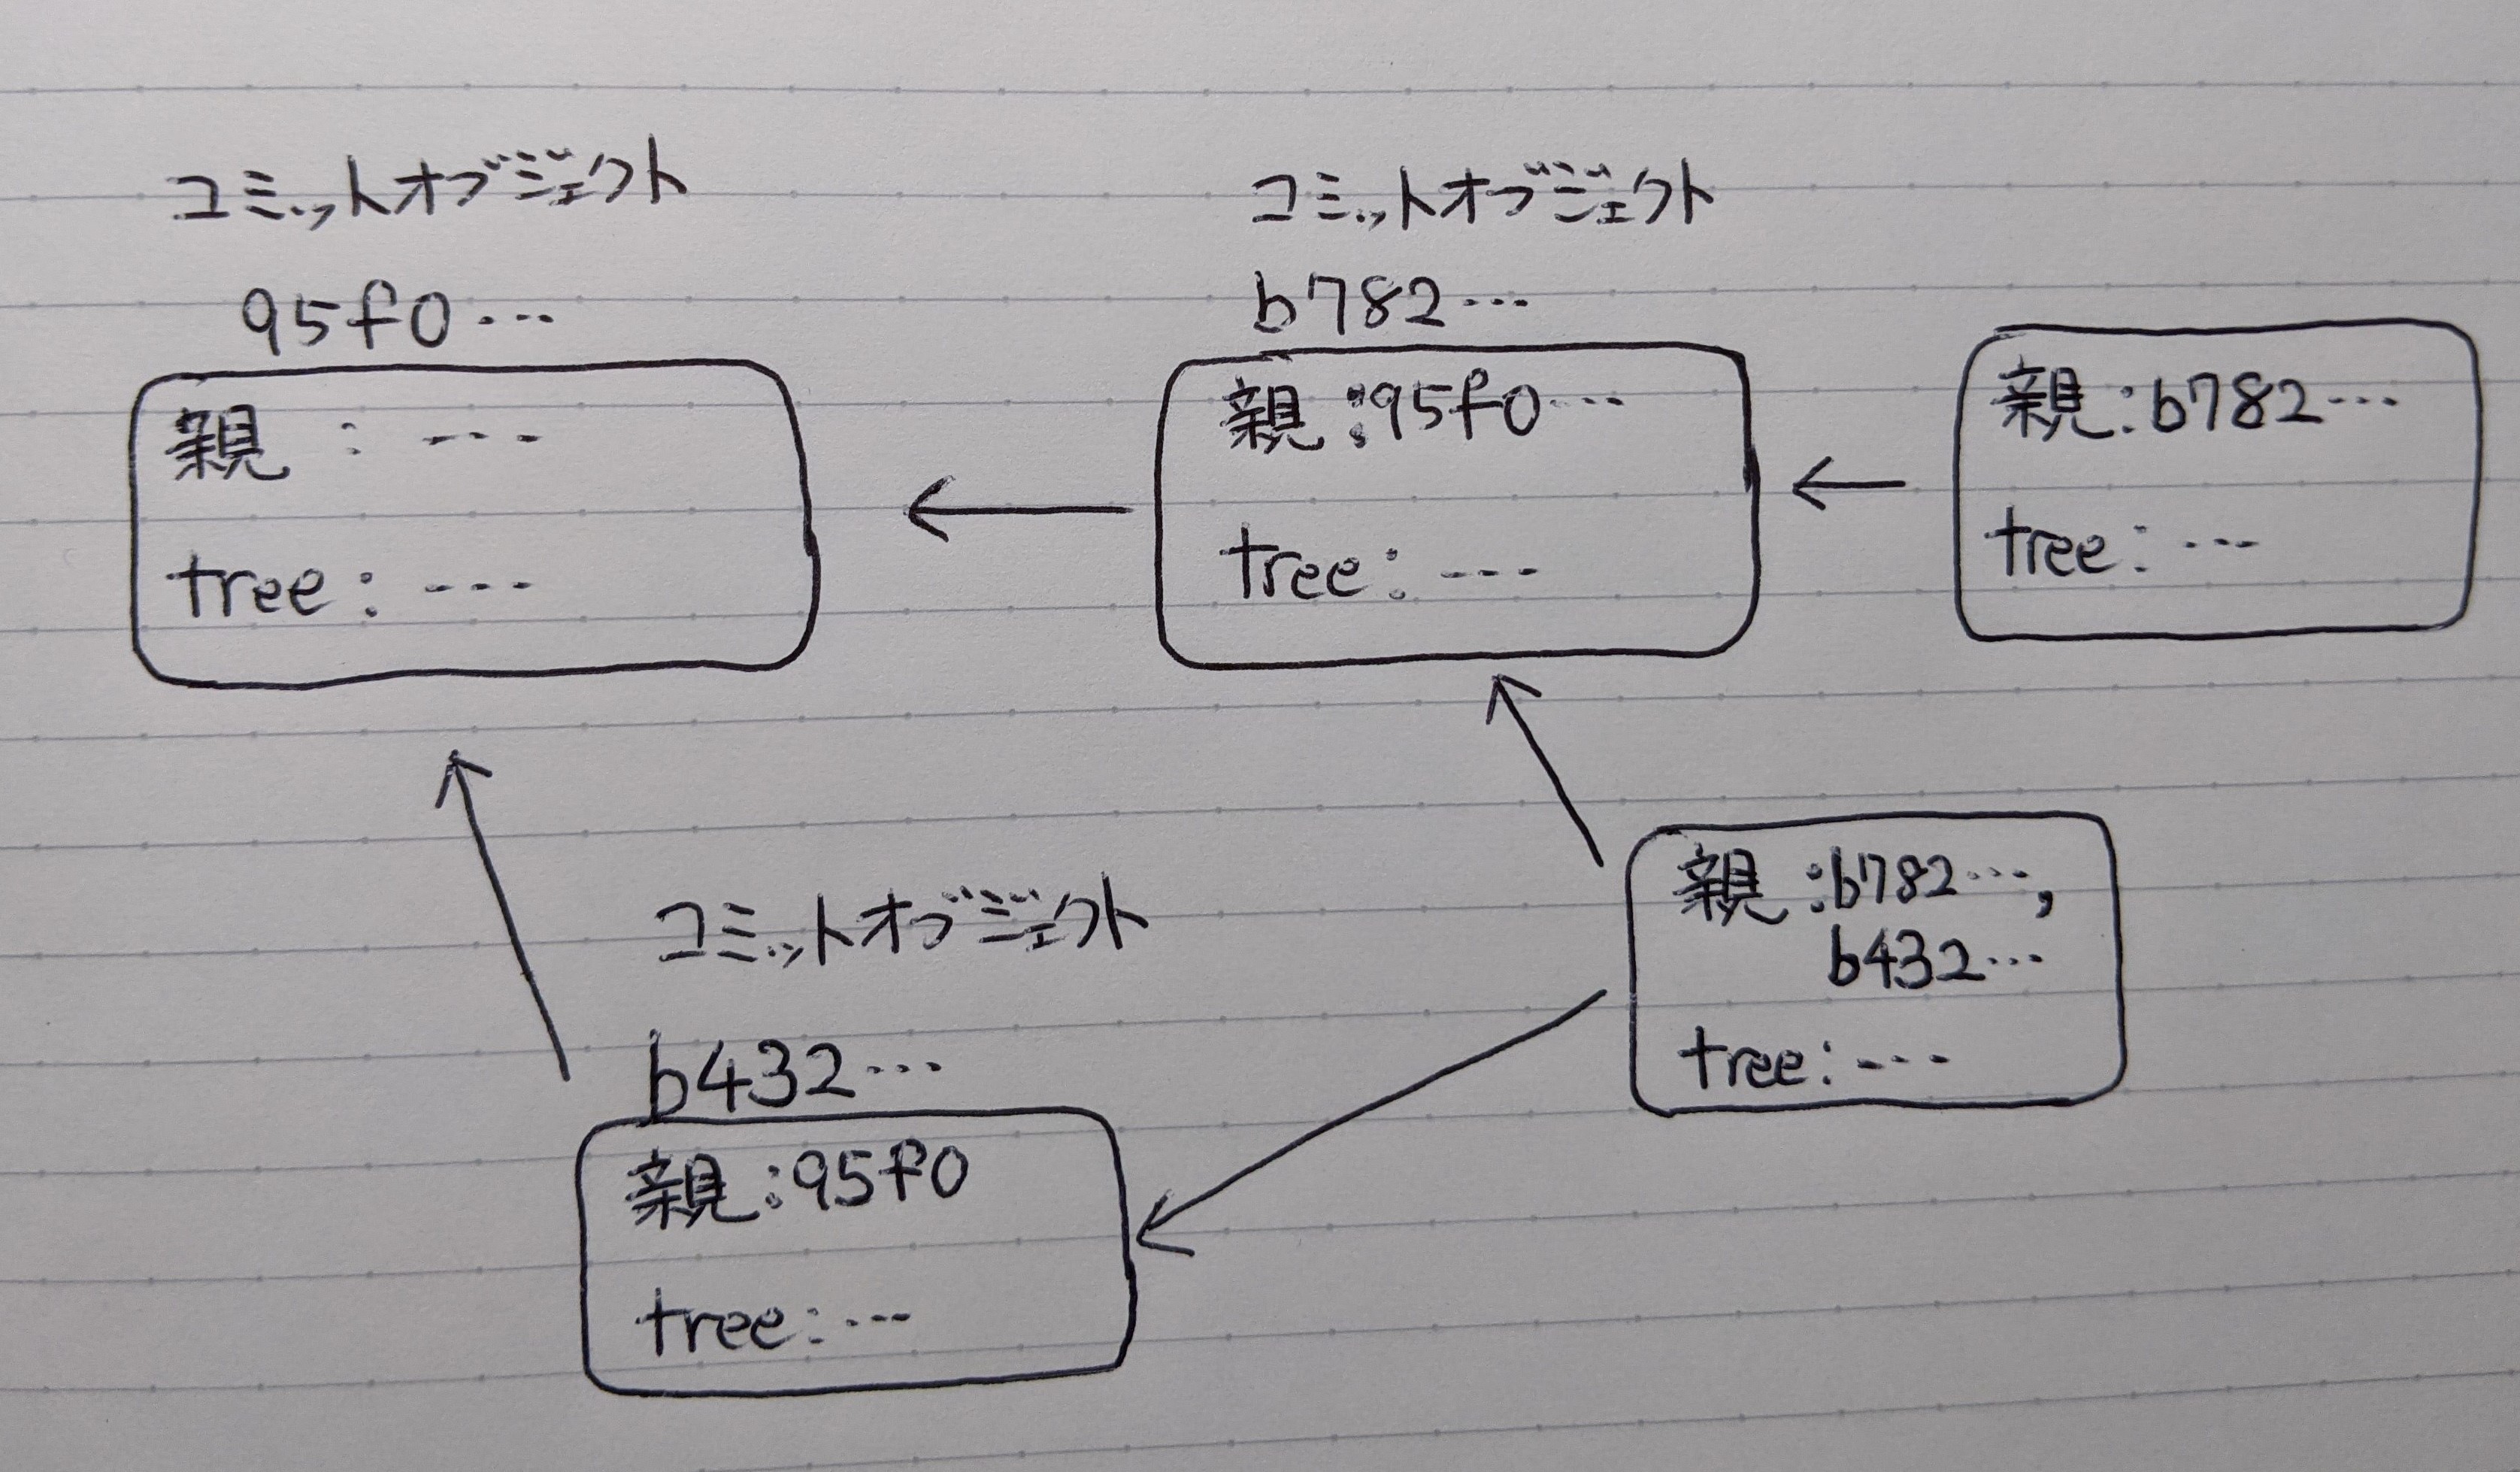 コミットオブジェクト
95f0…
親 : ---
tree: ---
コミットオブジェクト
b782…
親:95f0…
tree: ---
親:b782…
tree: ---
コミットオブジェクト
b432…
親:95f0
tree: ---
親:b782…,
b432…
tree: ---